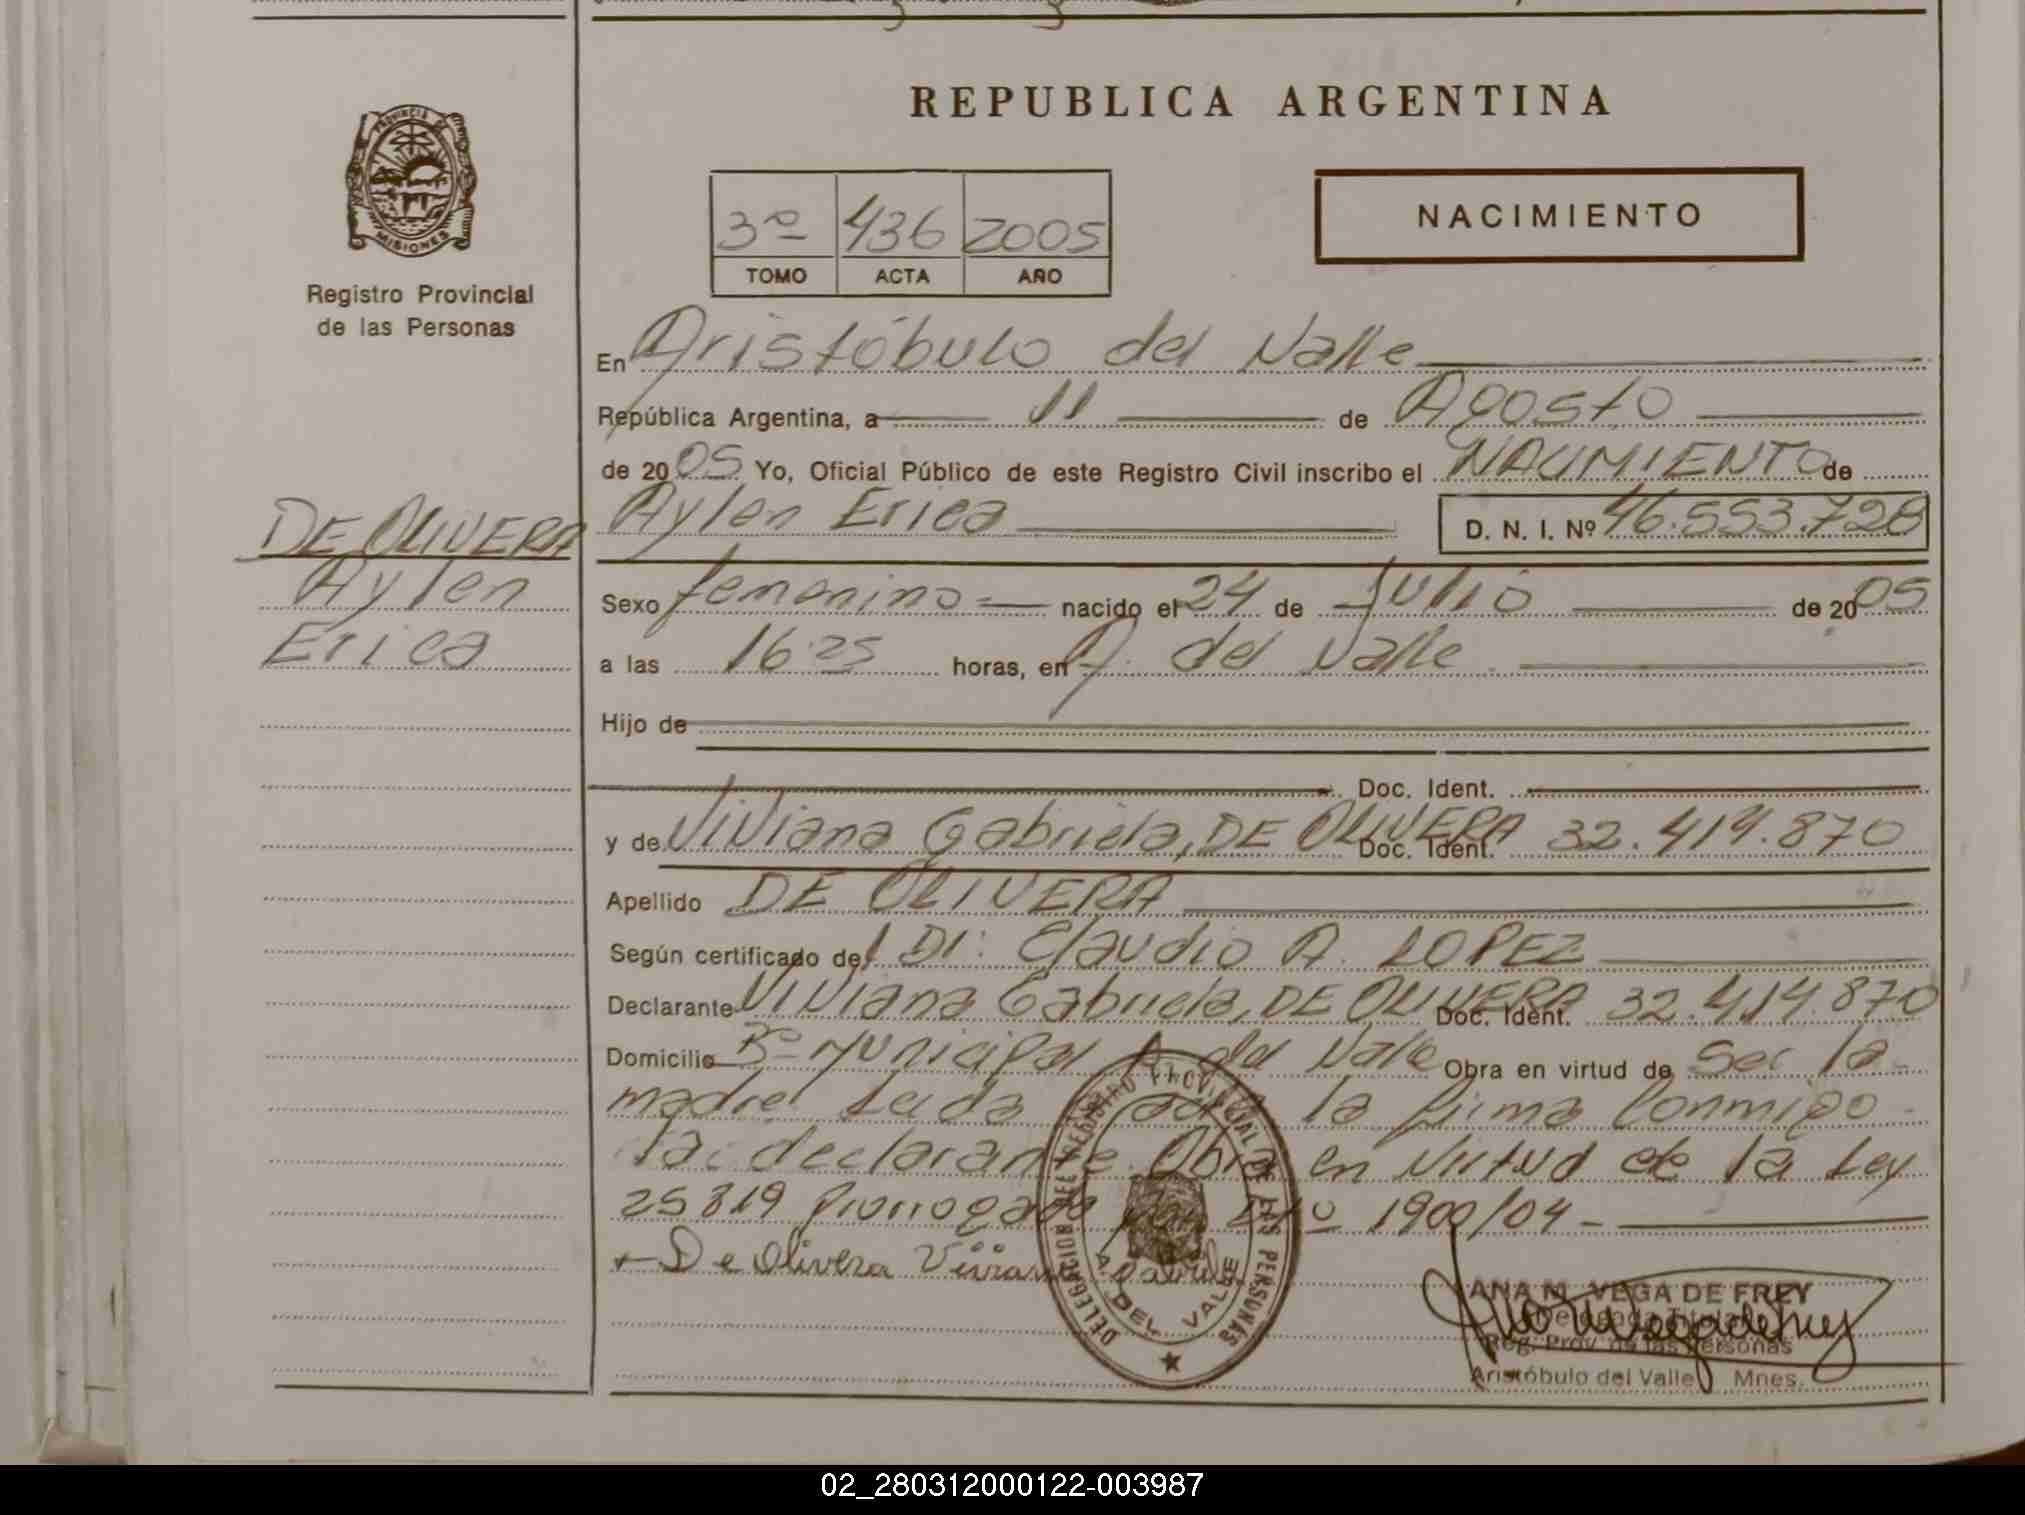 REPUBLICA ARGENTINA
PROVINCIA DE
MISIONES
Registro Provincial
de las Personas
3º 436 2005
TOMO ACTA AÑO
NACIMIENTO
En Aristóbulo del Valle
República Argentina, a 11 de Agosto
de 2005 Yo, Oficial Público de este Registro Civil inscribo el NACIMIENTO de
DE OLIVERA
Aylen
Erica
Aylen Erica D. N. I. Nº 46.553.728
Sexo femenino nacido el 24 de Julio de 2005
a las 16:25 horas, en A. del Valle.
Hijo de
Doc. Ident.
y de Viviana Gabriela, DE OLIVERA Doc. Ident. 32.414.870
Apellido DE OLIVERA
Según certificado del Dr: Claudio A. LOPEZ
Declarante Viviana Gabriela, DE OLIVERA Doc. Ident. 32.414.870
Domicilio Bº Municipal A. del Valle Obra en virtud de Ser la
madre Leida el acta la firma Conmigo
la declarante. Obra en virtud de la Ley
25819 Prorrogada por Dtº 1900/04
De Olivera Viviana Gabriela
DELEGACION DEL REGISTRO PROVINCIAL DE LAS PERSONAS
A. DEL VALLE
ANA M. VEGA DE FREY
Delegada Titular
Reg. Prov. de las Personas
Aristóbulo del Valle Mnes.
02_280312000122-003987